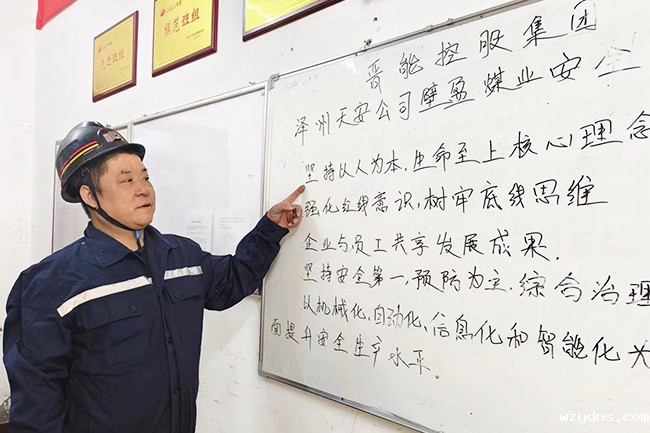 先进班组
模范班组
晋能控股集团
泽州天安公司壁盈煤业安全
坚持以人为本,生命至上核心理念
强化红线意识,树牢底线思维
企业与员工共享发展成果.
坚持安全第一,预防为主.综合治理
以机械化、自动化、信息化和智能化为
面提升安全生产水平.
wzydns.com